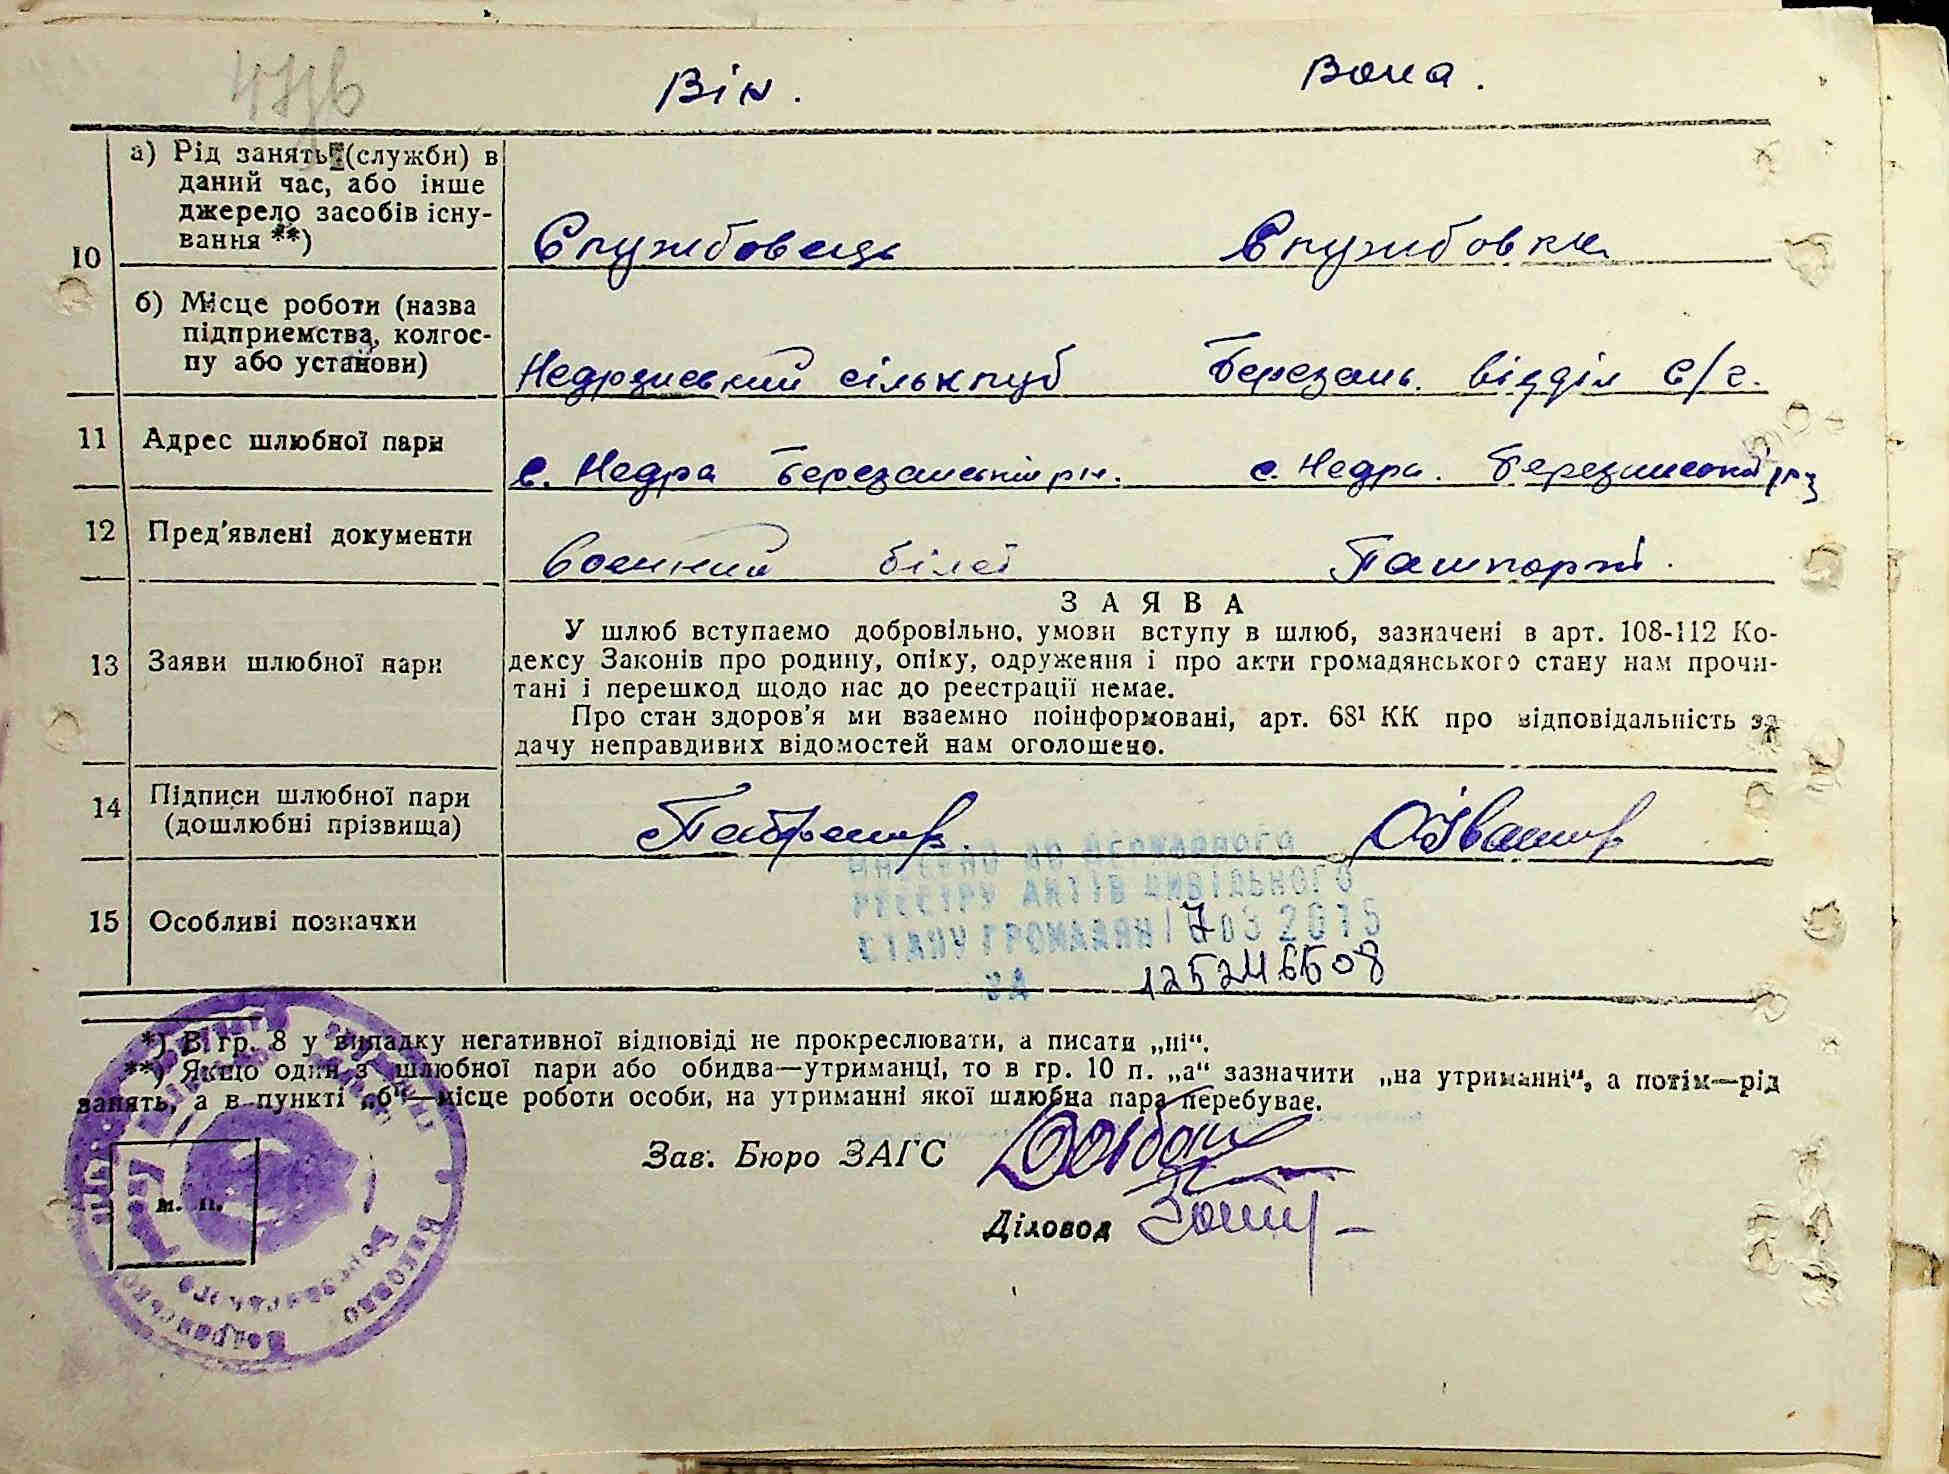 Він. Вона.
10
а) Рід занять (служби) в
даний час, або інше
джерело засобів існу-
вання **)
Службовець Службовка
б) Місце роботи (назва
підприємства, колгос-
пу або установи)
Недрянський сільклуб Березань. відділ с/г.
11 Адрес шлюбної пари
с. Недра Березанський рн. с. Недра.
12 Пред'явлені документи
Воєнний білет Пашпорт.
З А Я В А
У шлюб вступаємо добровільно, умови вступу в шлюб, зазначені в арт. 108-112 Ко-
13 Заяви шлюбної пари
дексу Законів про родину, опіку, одруження і про акти громадянського стану нам прочи-
тані і перешкод щодо нас до реєстрації немає.
Про стан здоров'я ми взаємно поінформовані, арт. 68¹ КК про відповідальність за
дачу неправдивих відомостей нам оголошено.
14 Підписи шлюбної пари
(дошлюбні прізвища)
ВНЕСЕНО ДО ДЕРЖАВНОГО
РЕЄСТРУ АКТІВ ЦИВІЛЬНОГО
15 Особливі позначки
СТАНУ ГРОМАДЯН 17 03 2015
ЗА
*) В гр. 8 у випадку негативної відповіді не прокреслювати, а писати „ні“.
**) Якщо один з шлюбної пари або обидва—утриманці, то в гр. 10 п. „а“ зазначити „на утриманні“, а потім—рід
занять, а в пункті „б“—місце роботи особи, на утриманні якої шлюбна пара перебуває.
Зав. Бюро ЗАГС
м. п.
Діловод